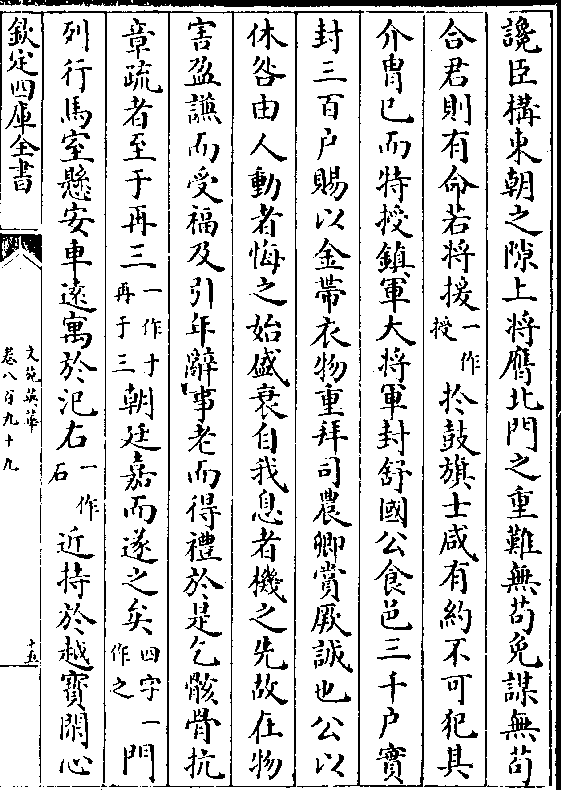 讒臣構東朝之隙上將膺北門之重難無苟免謀無苟
合君則有命若將援一作授於鼓旗士咸有約不可犯其
介胄已而特授鎮軍大將軍封舒國公食邑三千户實
封三百户賜以金帶衣物重拜司農卿賞厥誠也公以
休咎由人動者悔之始盛衰自我息者機之先故在物
害盈謙而受福及引年辭事老而得禮於是乞骸骨抗
章疏者至于再三一作十再于三朝廷嘉而遂之矣四字一作之門
列行馬室懸安車遠寓於汜右一作石近持於越寳閑心
欽定四庫全書
文苑英華
卷八百九十九
十五